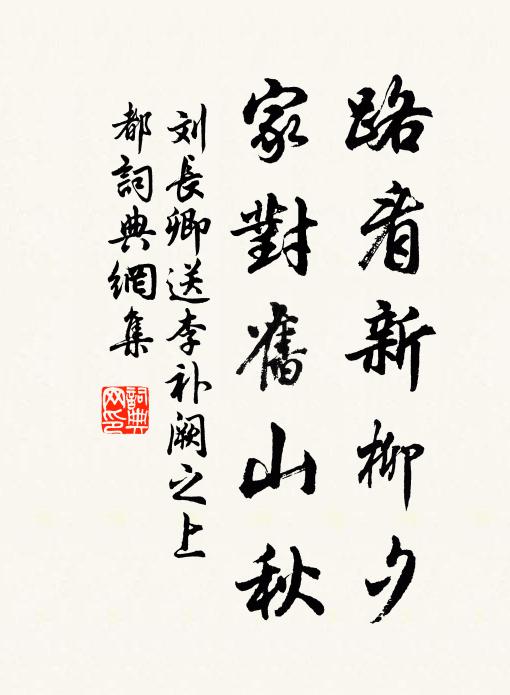 路看新柳夕
家對舊山秋
刘長卿送李补阙之上
都詞典網集
詞典网印